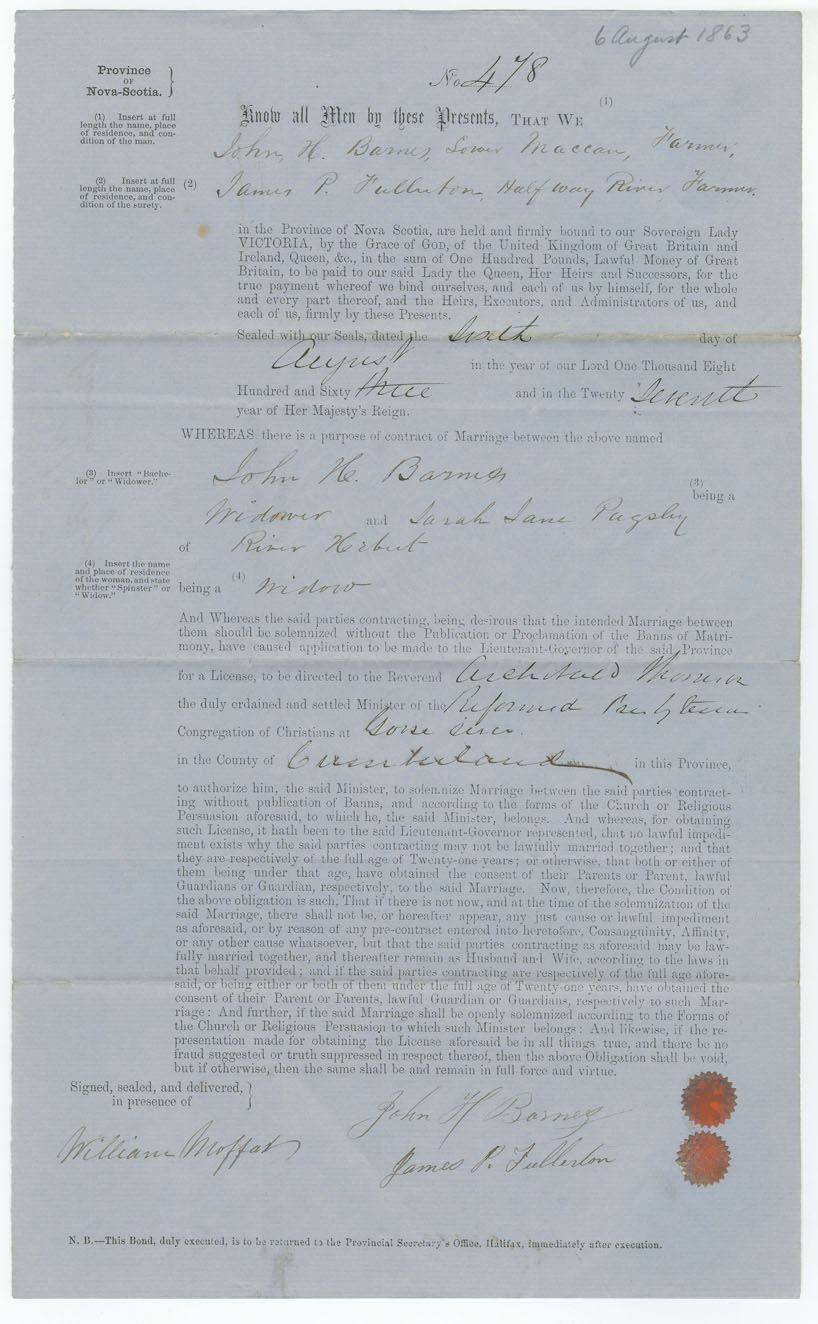 6 August 1863
Province
OF
Nova-Scotia.
No. 478
(1)
Know all Men by these Presents, THAT WE
(1) Insert at full
length the name, place
of residence, and con-
dition of the man.
John, H. Barnes, Lower Maccan, Farmer,
(2) Insert at full
length the name, place
of residence, and con-
dition of the surety.
(2) James P. Fullerton, Half way River Farmer.
in the Province of Nova Scotia, are held and firmly bound to our Sovereign Lady
VICTORIA, by the Grace of GOD, of the United Kingdom of Great Britain and
Ireland, Queen, &c., in the sum of One Hundred Pounds, Lawful Money of Great
Britain, to be paid to our said Lady the Queen, Her Heirs and Successors, for the
true payment whereof we bind ourselves, and each of us by himself, for the whole
and every part thereof, and the Heirs, Executors, and Administrators of us, and
each of us, firmly by these Presents.
Sealed with our Seals, dated the Sixth day of
August in the year of our Lord One Thousand Eight
Hundred and Sixty three and in the Twenty Seventh
year of Her Majesty's Reign.
WHEREAS there is a purpose of contract of Marriage between the above named
(3) Insert "Bache-
lor" or "Widower."
John H. Barnes
(3)
being a
Widower and Sarah Jane Pugsley
of River Hebert
(4) Insert the name
and place of residence
of the woman, and state
whether "Spinster" or
"Widow."
being a (4) Widow
And Whereas the said parties contracting, being desirous that the intended Marriage between
them should be solemnized without the Publication or Proclamation of the Banns of Matri-
mony, have caused application to be made to the Lieutenant-Governor of the said Province
for a License, to be directed to the Reverend Archibald
the duly ordained and settled Minister of the Reformed Presbyterian
Congregation of Christians at
in the County of Cumberland in this Province,
to authorize him, the said Minister, to solemnize Marriage between the said parties contract-
ing without publication of Banns, and according to the forms of the Church or Religious
Persuasion aforesaid, to which he, the said Minister, belongs. And whereas, for obtaining
such License, it hath been to the said Lieutenant-Governor represented, that no lawful impedi-
ment exists why the said parties contracting may not be lawfully married together; and that
they are respectively of the full age of Twenty-one years; or otherwise, that both or either of
them being under that age, have obtained the consent of their Parents or Parent, lawful
Guardians or Guardian, respectively, to the said Marriage. Now, therefore, the Condition of
the above obligation is such, That if there is not now, and at the time of the solemnization of the
said Marriage, there shall not be, or hereafter appear, any just cause or lawful impediment
as aforesaid, or by reason of any pre-contract entered into heretofore, Consanguinity, Affinity,
or any other cause whatsoever, but that the said parties contracting as aforesaid may be law-
fully married together, and thereafter remain as Husband and Wife, according to the laws in
that behalf provided; and if the said parties contracting are respectively of the full age afore-
said, or being either or both of them under the full age of Twenty-one years, have obtained the
consent of their Parent or Parents, lawful Guardian or Guardians, respectively to such Mar-
riage: And further, if the said Marriage shall be openly solemnized according to the Forms of
the Church or Religious Persuasion to which such Minister belongs: And likewise, if the re-
presentation made for obtaining the License aforesaid be in all things true, and there be no
fraud suggested or truth suppressed in respect thereof, then the above Obligation shall be void,
but if otherwise, then the same shall be and remain in full force and virtue.
Signed, sealed, and delivered,
in presence of
John H Barnes
William Moffat
James P. Fullerton
N. B.—This Bond, duly executed, is to be returned to the Provincial Secretary's Office, Halifax, immediately after execution.